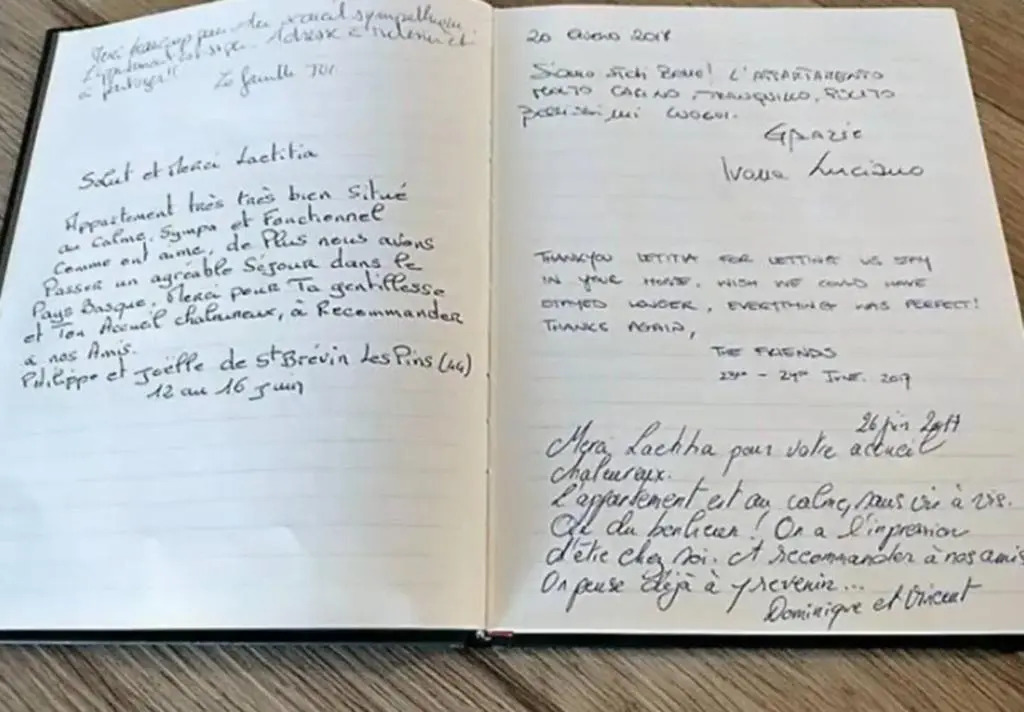 Merci beaucoup pour
Adresse à
à partager!!
La famille
Salut et Merci Laetitia
Appartement très très bien Situé
au Calme, Sympa et Fonctionnel
Comme ont aime, de Plus nous avons
Passer un agréable Séjour dans le
Pays Basque, Merci pour Ta gentillesse
et Ton Accueil chaleureux, à Recommander
à nos Amis.
Philippe et Joëlle de St Brévin Les Pins (44)
12 au 16 Juin
20
Siamo stati Bene! L'APPARTAMENTO
MOLTO CARINO, TRANQUILLO,
bellissimi LUOGHI.
Grazie
Ivana Luciano
THANKYOU LETITIA FOR LETTING US STAY
IN YOUR HOME. WISH WE COULD HAVE
STAYED LONGER, EVERYTHING WAS PERFECT!
THANKS AGAIN,
THE FRIENDS
23RD - 24TH JUNE. 2017
26 juin 2017
Merci Laetitia pour votre accueil
chaleureux.
L'appartement est au calme, sans vis à vis.
Que du bonheur! On a l'impression
d'être chez soi. A recommander à nos amis
On pense déjà à y revenir...
Dominique et Vincent